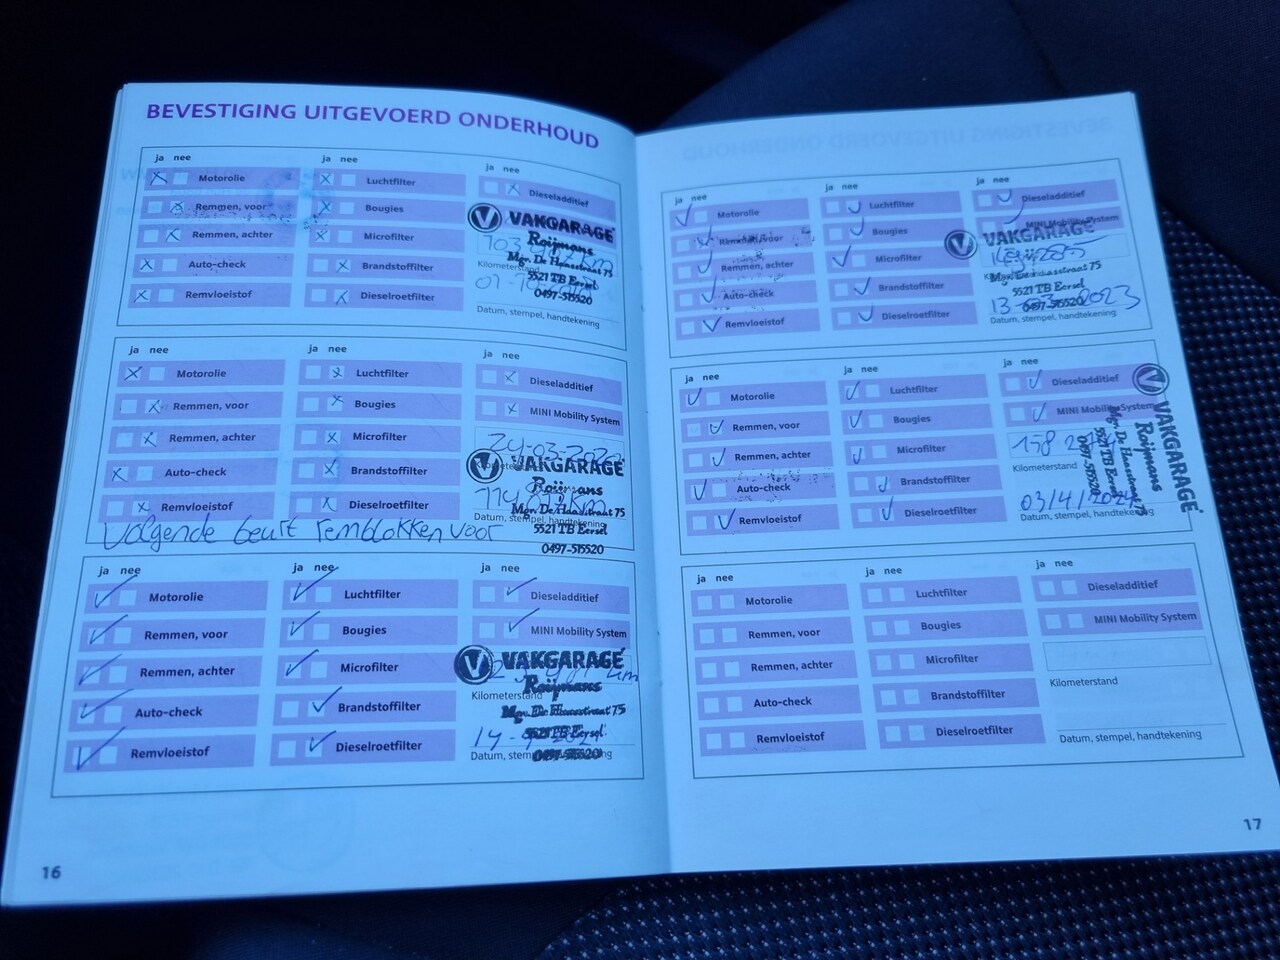 BEVESTIGING UITGEVOERD ONDERHOUD
ja nee
ja nee
ja nee
Motorolie
Luchtfilter
Dieseladditief
Remmen, voor
Bougies
Remmen, achter
Microfilter
Auto-check
Brandstoffilter
Remvloeistof
Dieselroetfilter
VAKGARAGE
Roijmans
Mgr. De Haasstraat 75
5521 TB Eersel
0497-515520
Kilometerstand
Datum, stempel, handtekening
ja nee
ja nee
ja nee
Motorolie
Luchtfilter
Dieseladditief
Remmen, voor
Bougies
MINI Mobility System
Remmen, achter
Microfilter
Auto-check
Brandstoffilter
Remvloeistof
Dieselroetfilter
VAKGARAGE
Roijmans
Mgr. De Haasstraat 75
5521 TB Eersel
0497-515520
Volgende beurt remblokken voor
ja nee
ja nee
ja nee
Motorolie
Luchtfilter
Dieseladditief
Remmen, voor
Bougies
MINI Mobility System
Remmen, achter
Microfilter
Auto-check
Brandstoffilter
Remvloeistof
Dieselroetfilter
VAKGARAGE
Roijmans
Kilometerstand
Mgr. De Haasstraat 75
5521 TB Eersel
0497-515520
16
ja nee
ja nee
ja nee
Motorolie
Luchtfilter
Dieseladditief
Remmen, voor
Bougies
MINI Mobility System
Remmen, achter
Microfilter
Auto-check
Brandstoffilter
Remvloeistof
Dieselroetfilter
VAKGARAGE
Roijmans
Mgr. De Haasstraat 75
5521 TB Eersel
0497-515520
13-03-2023
Datum, stempel, handtekening
ja nee
ja nee
ja nee
Motorolie
Luchtfilter
Dieseladditief
Remmen, voor
Bougies
MINI Mobility System
Remmen, achter
Microfilter
Auto-check
Brandstoffilter
Remvloeistof
Dieselroetfilter
Kilometerstand
03/4/2024
Datum, stempel, handtekening
VAKGARAGE
Roijmans
Mgr. De Haasstraat 75
5521 TB Eersel
0497-515520
ja nee
ja nee
ja nee
Motorolie
Luchtfilter
Dieseladditief
Remmen, voor
Bougies
MINI Mobility System
Remmen, achter
Microfilter
Auto-check
Brandstoffilter
Remvloeistof
Dieselroetfilter
Kilometerstand
Datum, stempel, handtekening
17